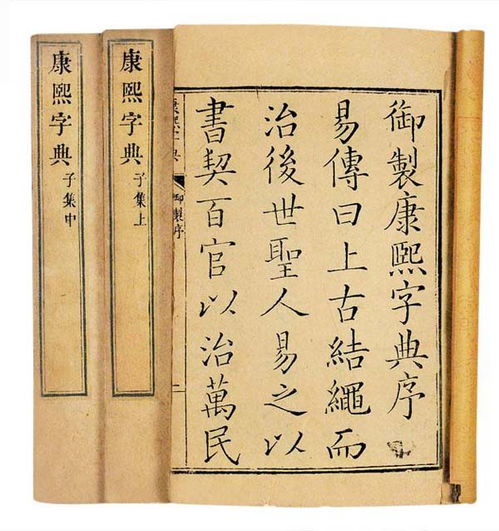 御製康熙字典序
易傳曰上古結繩而
治後世聖人易之以
書契百官以治萬民
御製序
康熙字典 子集上
康熙字典 子集中